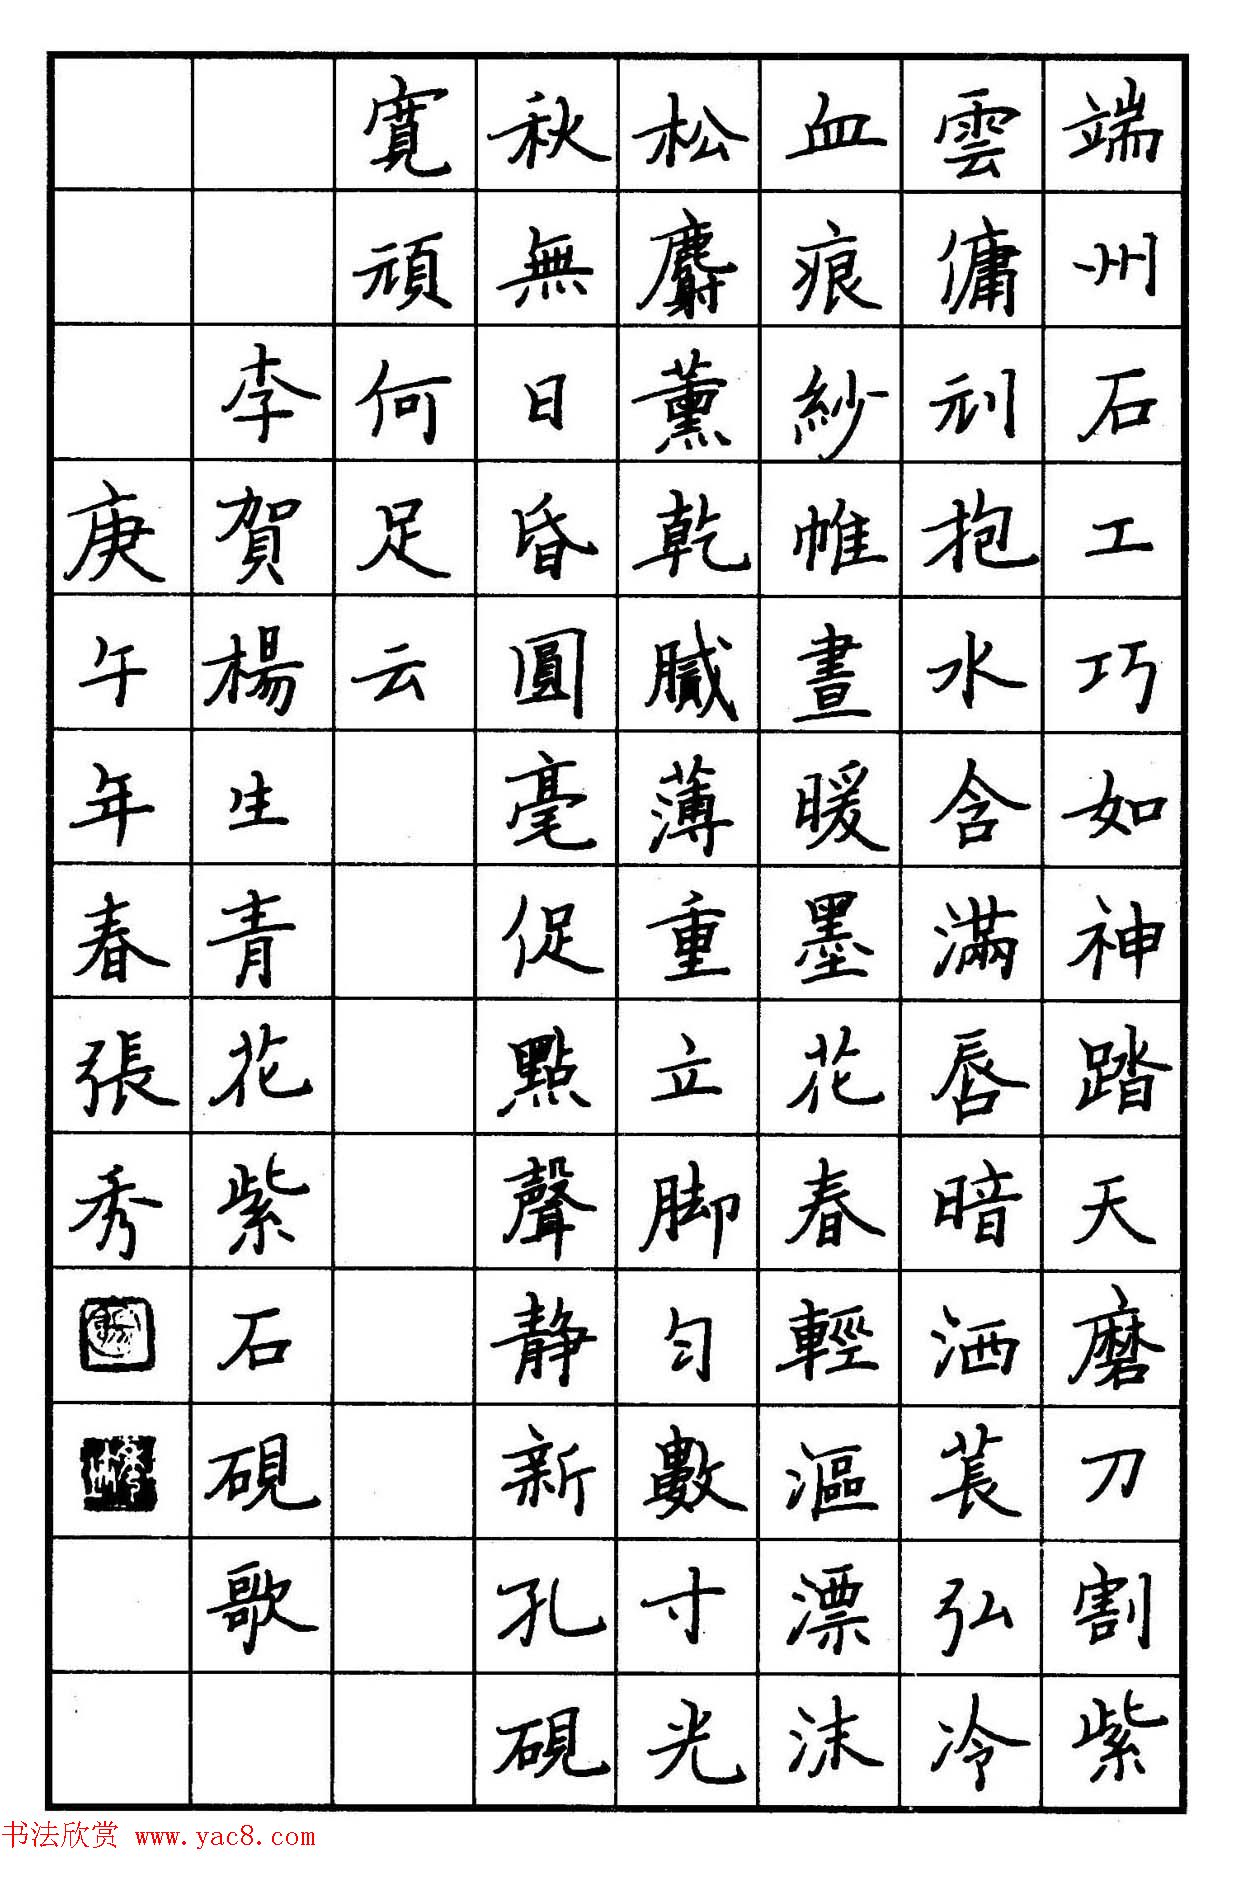 端州石工巧如神踏天磨刀割紫
雲傭刓抱水含滿唇暗洒萇弘冷
血痕紗帷晝暖墨花春輕漚漂沫
松麝薰乾膩薄重立脚匀數寸光
秋無日昏圓毫促點聲静新孔硯
寬頑何足云
李賀楊生青花紫石硯歌
庚午年春張秀
书法欣赏 www.yac8.com